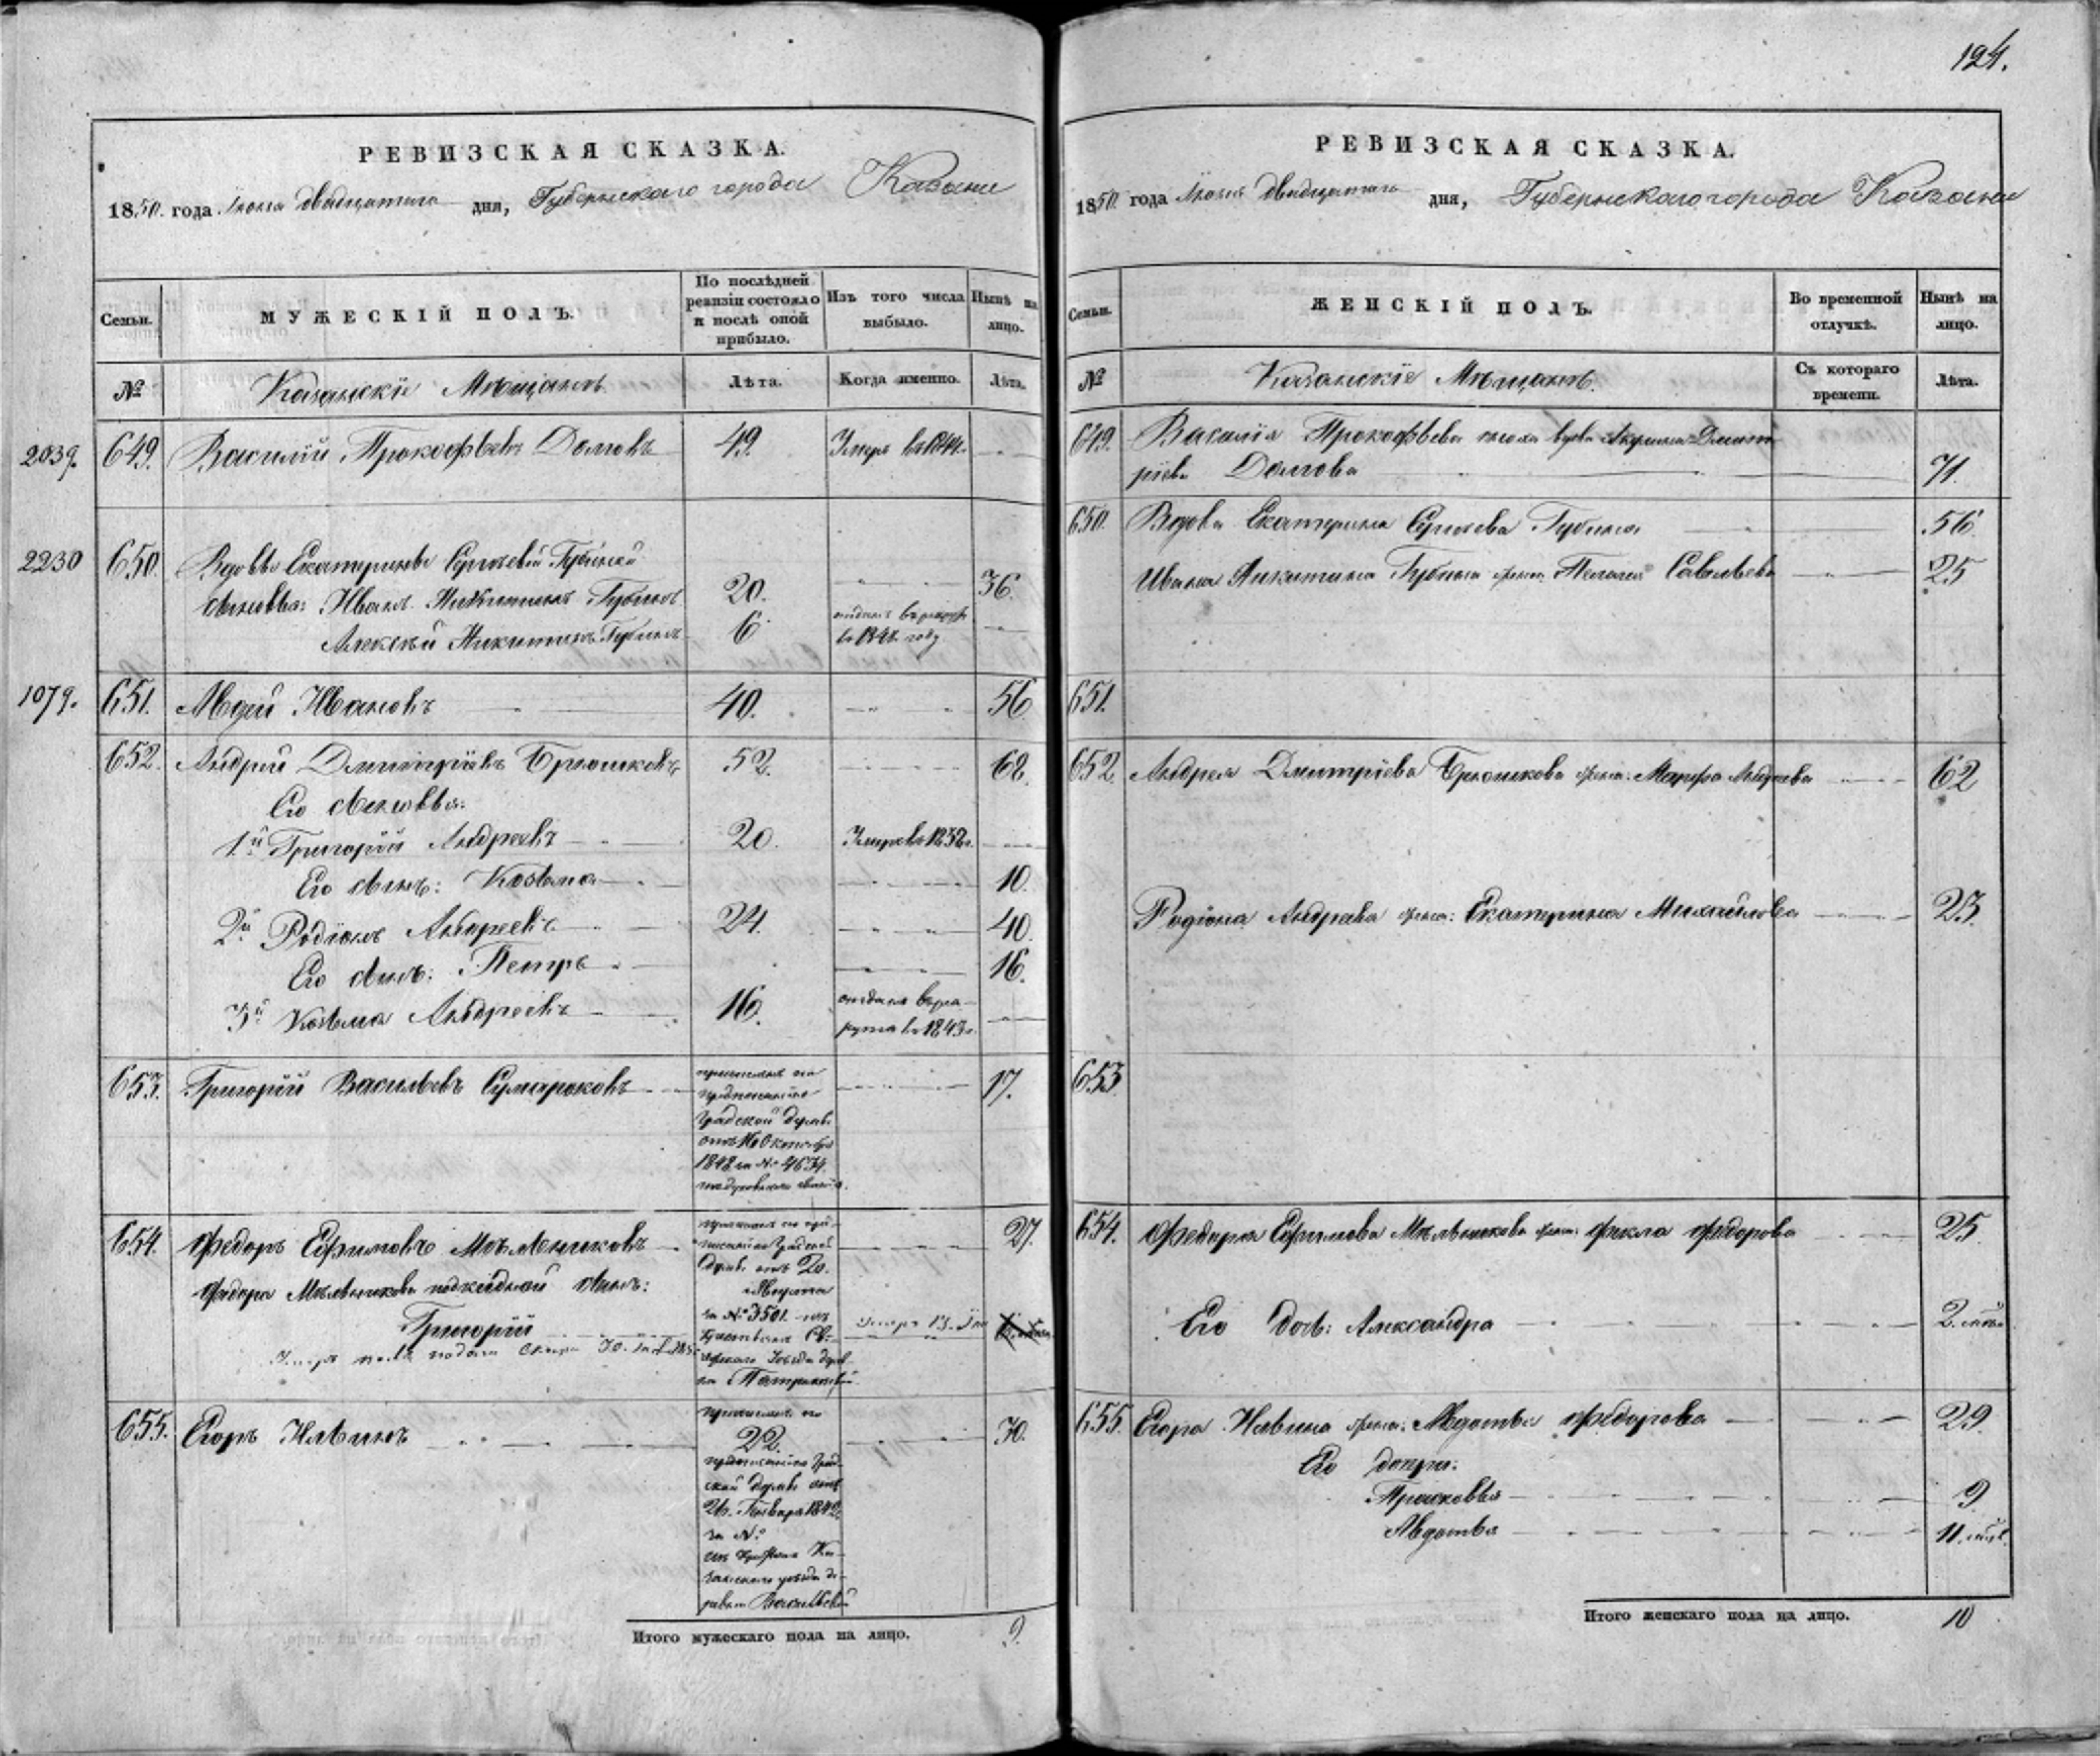 РЕВИЗСКАЯ СКАЗКА.
1850. года Іюня двадцатаго дня, Губернскаго города Казани
Семьи.
МУЖЕСКІЙ ПОЛЪ.
По послѣдней ревизіи состояло и послѣ оной прибыло.
Изъ того числа выбыло.
Нынѣ на лицо.
№
Казанскіе Мѣщане
Лѣта.
Когда именно.
Лѣта.
2039. 649. Василій Прокофьевъ Долговъ 49.
2230 650. Вдовы Екатерины Сергѣевой Губиной
сыновья: Иванъ Никитинъ Губинъ 20. 36.
Алексѣй Никитинъ Губинъ 6 отданъ въ рекруты
1079. 651. Авдѣй Ивановъ 40. 56
652. Андрей Дмитріевъ Брюшковъ 52. 68.
Его сыновья:
1й Григорій Андреевъ 20.
Его сынъ: Козьма 10.
2й Родіонъ Андреевъ 24. 40.
Его сынъ: Петръ 16.
3й Козьма Андреевъ 16. отданъ въ рекруты въ 1843 г.
653. Григорій Васильевъ Сумароковъ 17.
Градской Думы
отъ 16 Октября
1848 за № 4634.
654. Федоръ Ефимовъ Мѣльниковъ 27.
Думы отъ 20.
Марта
за № 3501. изъ
Федора Мѣльникова подкидной сынъ:
Григорій
655. Егоръ Ильинъ 30.
22.
ской Думы отъ
26. Генваря 1842
за №
занскаго уѣзда де-
ревни Васильевой
Итого мужескаго пола на лицо. 9.
124.
РЕВИЗСКАЯ СКАЗКА.
1850. года Іюня двадцатаго дня, Губернскаго города Казани
Семьи.
ЖЕНСКІЙ ПОЛЪ.
Во временной отлучкѣ.
Нынѣ на лицо.
№
Казанскіе Мѣщане.
Съ котораго времени.
Лѣта.
649. Василія Прокофьева вдова Акулина Дмит
ріева Долгова 71.
650. Вдова Екатерина Сергѣева Губина 56
Ивана Никитина Губина жена Пелагея Савельева 25
651.
652. Андрея Дмитріева Брюшкова жена: Марфа Андреева 62
Родіона Андреева жена: Екатерина Михайлова 23.
653
654. Федора Ефимова Мѣльникова жена: Фекла Федорова 25
Его дочь: Александра
655. Егора Ильина жена: Авдотья Федорова 29.
Его дочери:
Прасковья 9
Авдотья
Итого женскаго пола на лицо. 10